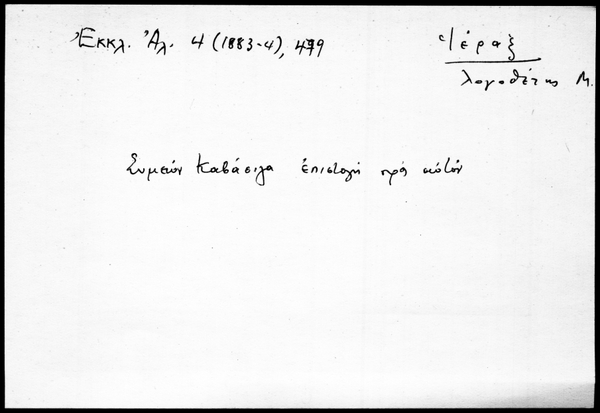 Ἐκκλ. Ἀλ. 4 (1883-4), 479
Ἱέραξ
λογοθέτης Μ.
Συμεών Καβάσιλα ἐπιστολή πρός αὐτόν